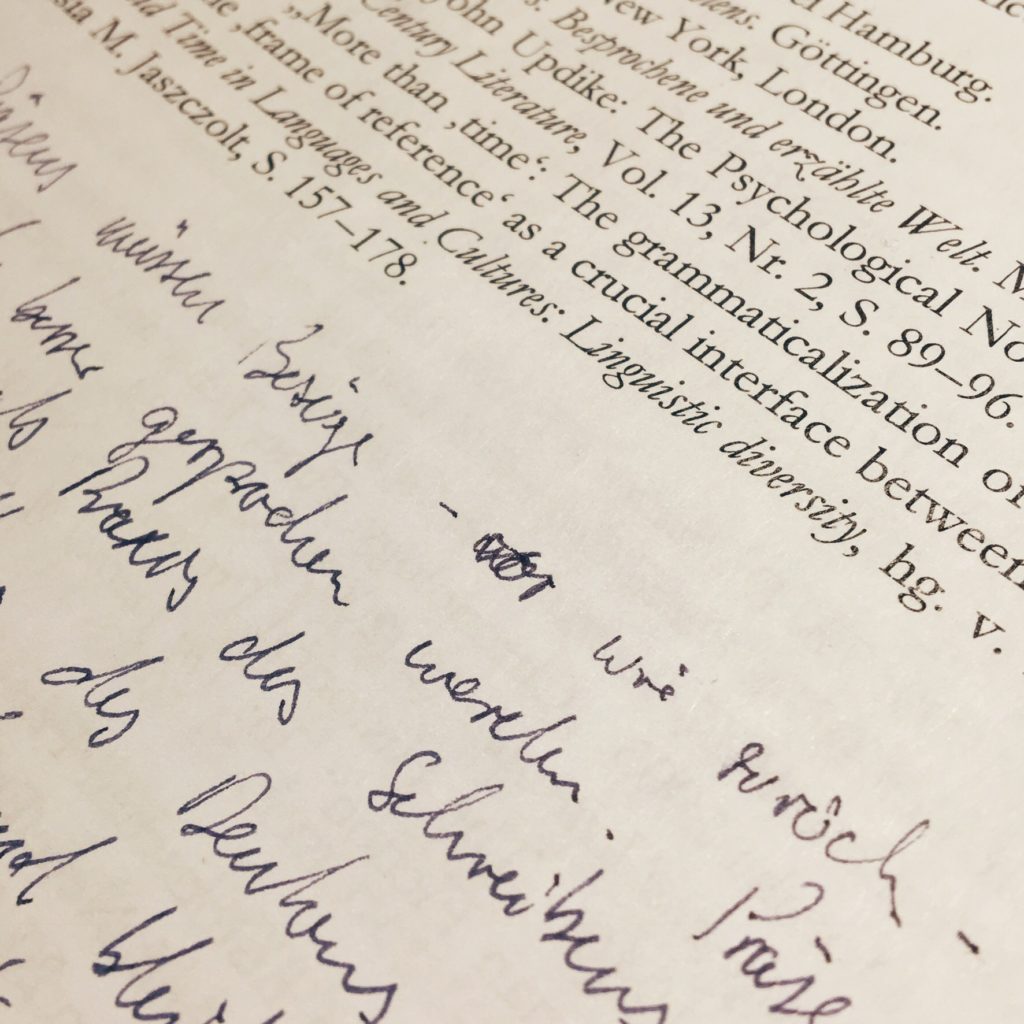 Hamburg.
Göttingen.
New York, London.
Besprochene und erzählte Welt.
John Updike: The Psychological No
Century Literature, Vol. 13, Nr. 2, S. 89–96.
„More than ‚time‘: The grammaticalization of
‚frame of reference‘ as a crucial interface between
Time in Languages and Cultures: Linguistic diversity, hg. v.
M. Jaszczolt, S. 157–178.
müssen Bezüge - wie zurück -
gesprochen werden. Präse
Praxis des Schreibens
des Denkens